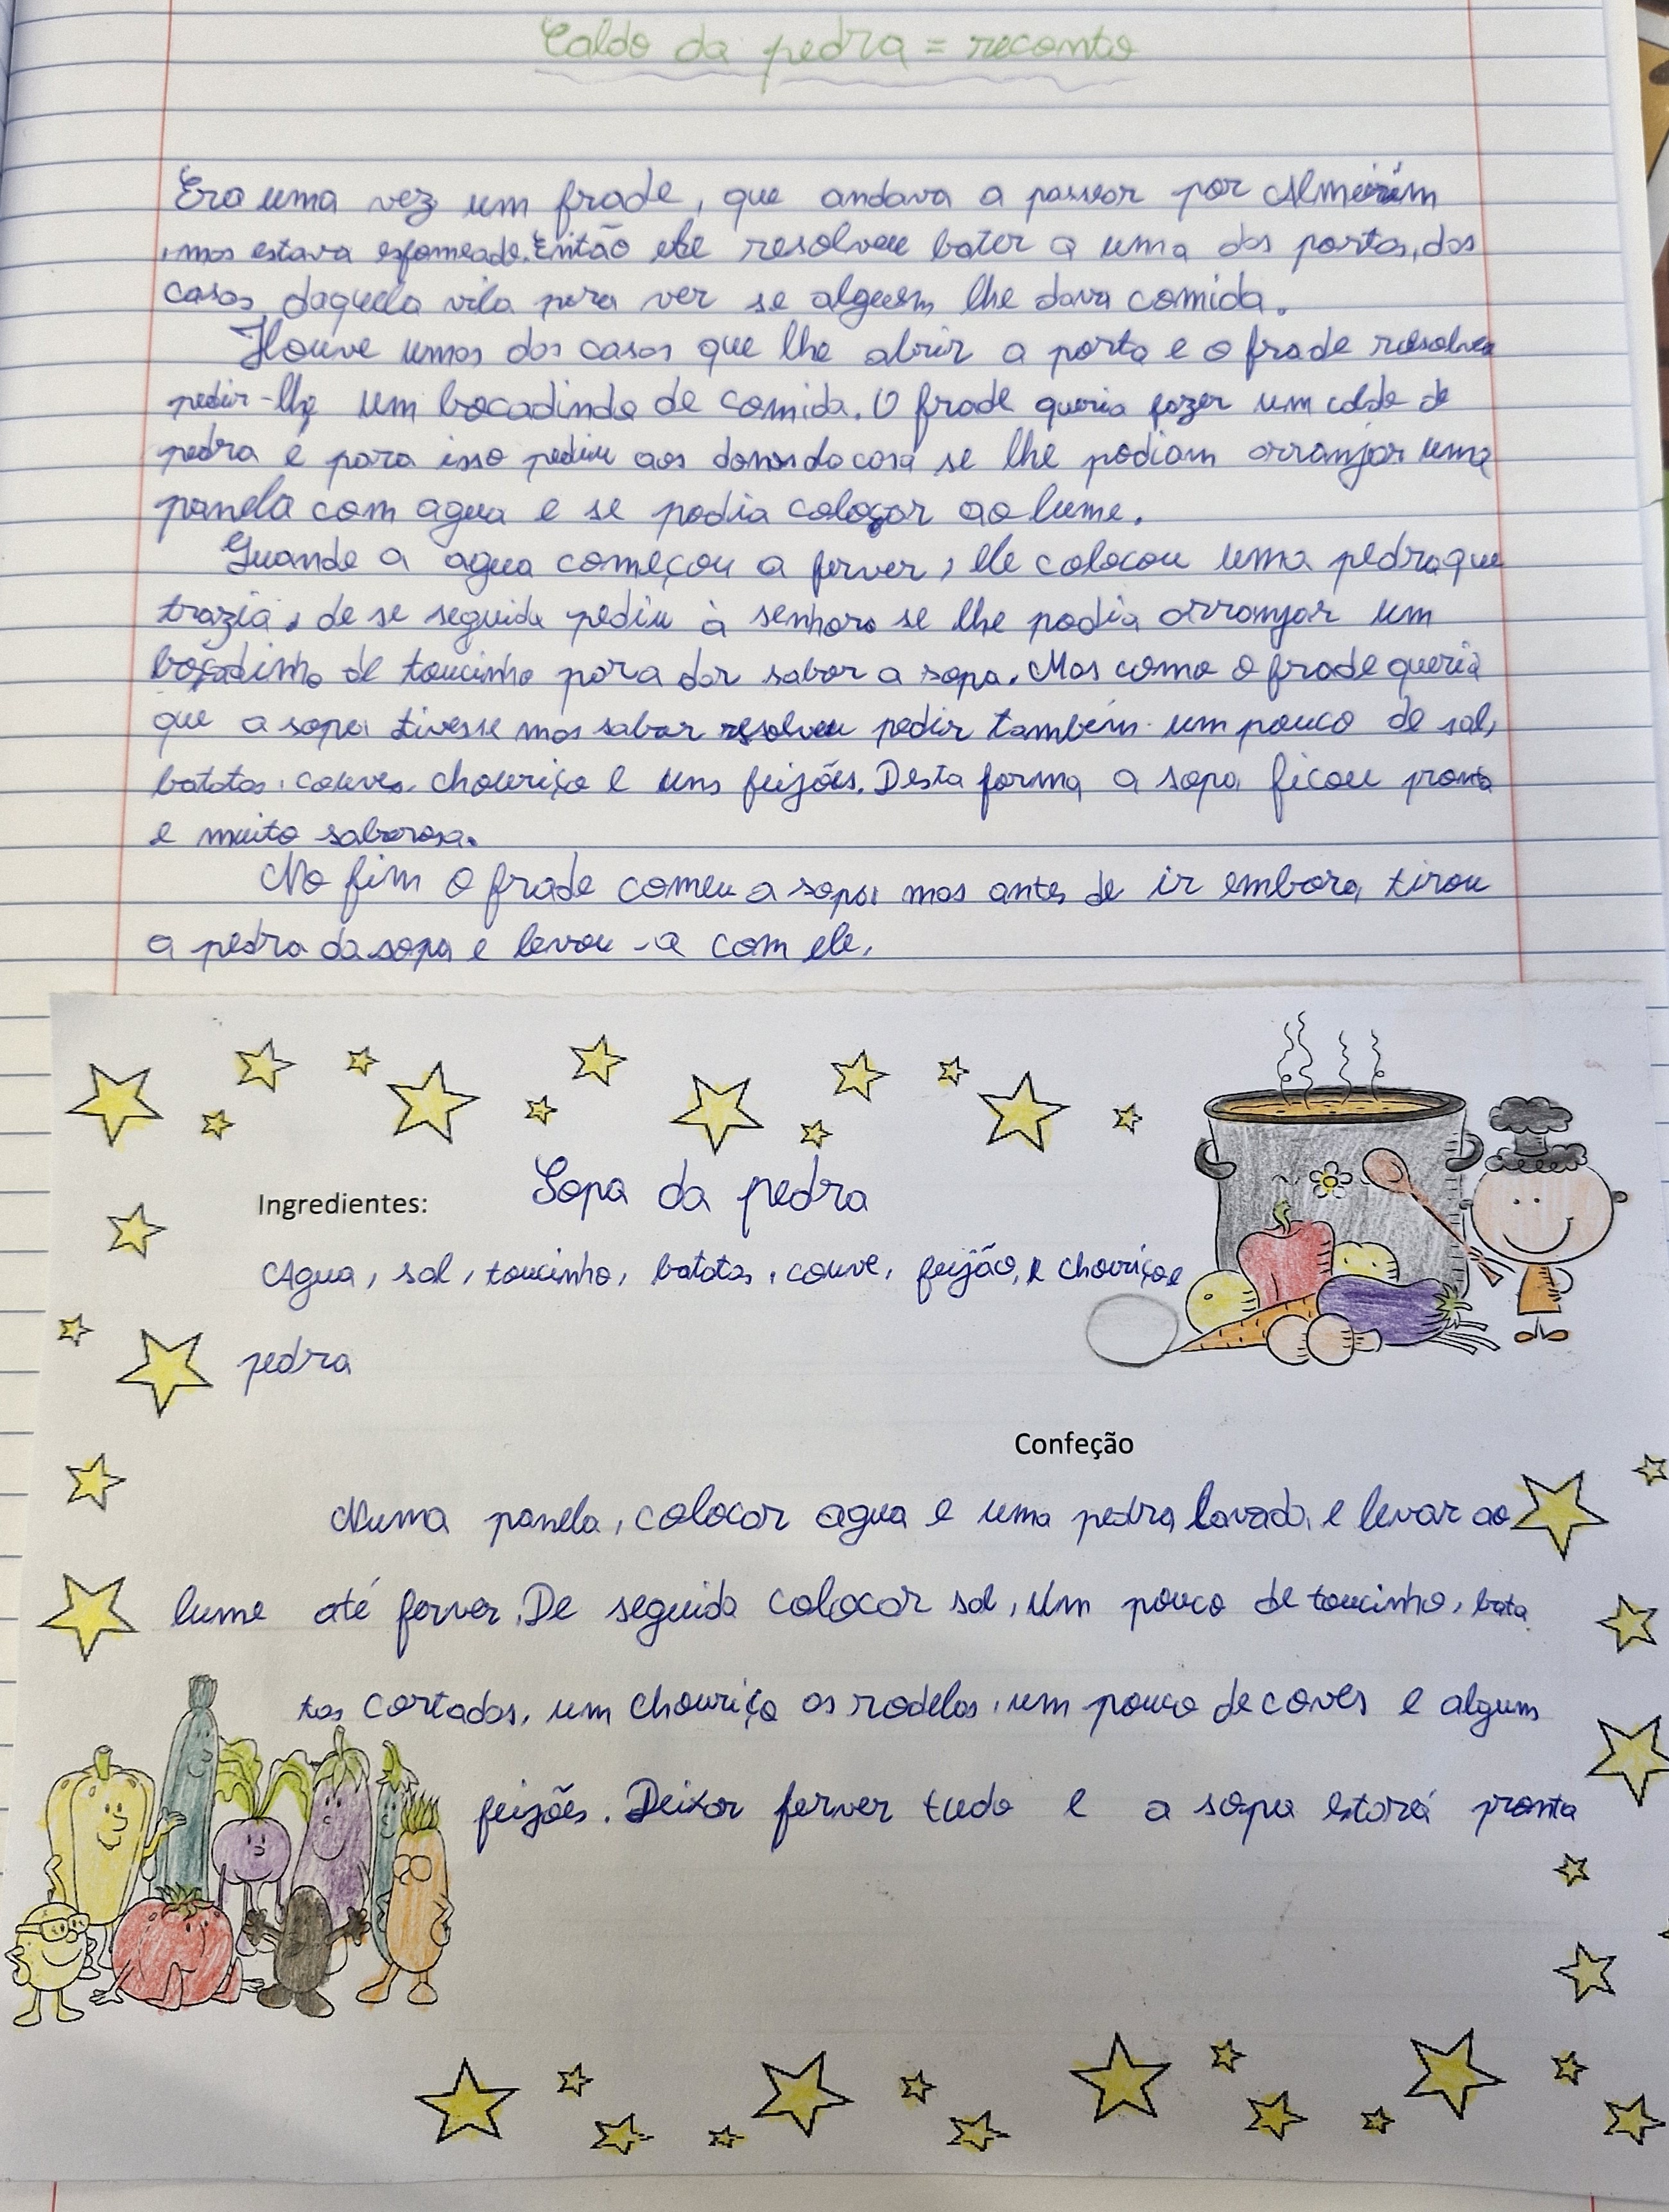 Caldo da pedra = reconto
Era uma vez um frade, que andava a passear por Almeirim
, mas estava esfomeado. Então ele resolveu bater a uma das portas, das
casas, daquela vila para ver se alguem lhe dava comida.
Houve umas das casas que lhe abrir a porta e o frade resolveu
pedir-lhe um bocadindo de comida. O frade queria fazer um caldo de
pedra e para isso pediu aos donos da casa se lhe podiam arranjar uma
panela com agua e se podia colocar ao lume.
Quando a agua começou a ferver, ele colocou uma pedra que
trazia, de se seguida pediu à senhora se lhe podia arranjar um
bocadinho de toucinho para dar sabor a sopa. Mas como o frade queria
que a sopa tivesse mas sabor resolveu pedir também um pouco de sal,
batatas, couves, chouriço e uns feijões. Desta forma a sopa ficou pronta
e muito saborosa.
No fim o frade comeu a sopa, mas antes de ir embora, tirou
a pedra da sopa e levou-a com ele.
Sopa da pedra
Ingredientes:
Agua, sal, toucinho, batatas, couve, feijão, e chouriço e
pedra
Confeção
Numa panela, colocar agua e uma pedra lavada, e levar ao
lume até ferver. De seguida colocar sal, um pouco de toucinho, bata
tas cortadas, um chouriço os rodelas, um pouco de coves e algum
feijões. Deixar ferver tudo e a sopa estará pronta